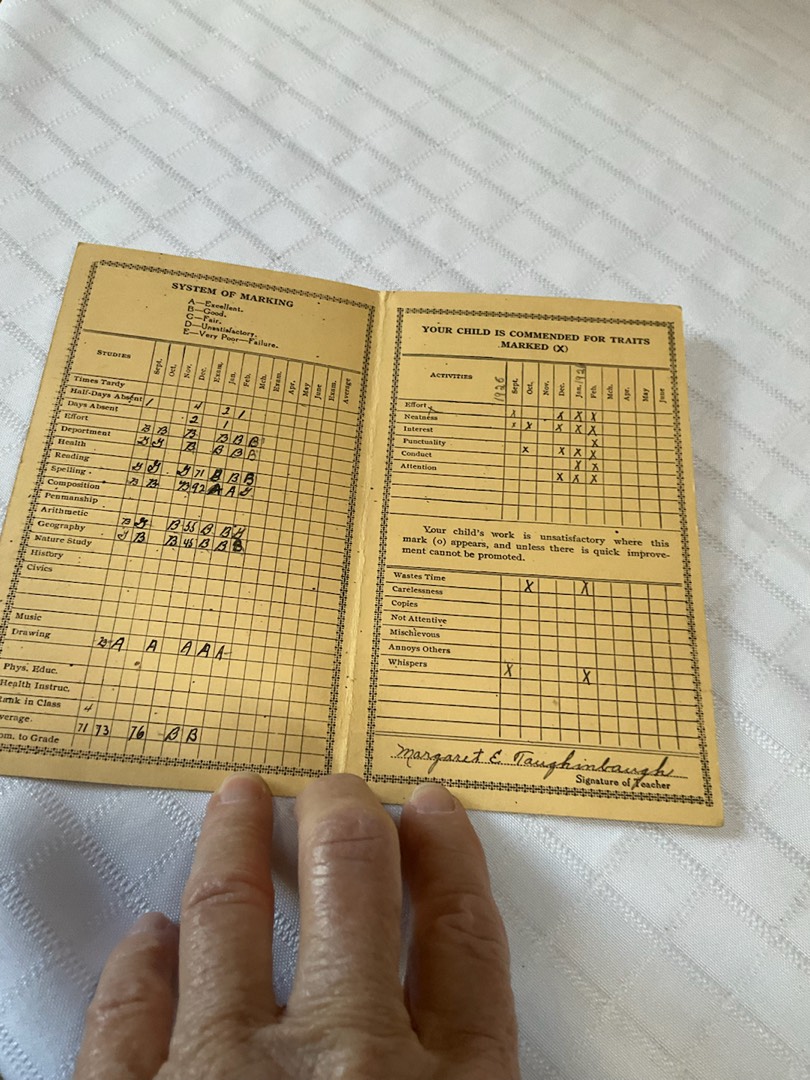 SYSTEM OF MARKING
A—Excellent.
B—Good.
C—Fair.
D—Unsatisfactory.
E—Very Poor—Failure.
STUDIES Sept. Oct. Nov. Dec. Exam. Jan. Feb. Mch. Exam. Apr. May June Exam. Average
Times Tardy
Half-Days Absent 1 4 2 1
Days Absent 2 1
Effort B B B B B B
Deportment B B B B
Health
Reading
Spelling 71 B B B
Composition B B B 92 A A
Penmanship
Arithmetic
Geography B B 55 B B
Nature Study B B 45 B B B
History
Civics
Music
Drawing B A A A A A
Phys. Educ.
Health Instruc.
Rank in Class 4
verage.
om. to Grade 71 73 76 B B
YOUR CHILD IS COMMENDED FOR TRAITS
MARKED (X)
ACTIVITIES 1926 Sept. Oct. Nov. Dec. Jan. Feb. Mch. Apr. May June
Effort
Neatness X X X X
Interest X X X X X
Punctuality X
Conduct X X X X
Attention X X
X X X
Your child's work is unsatisfactory where this
mark (o) appears, and unless there is quick improve-
ment cannot be promoted.
Wastes Time
Carelessness X X
Copies
Not Attentive
Mischievous
Annoys Others
Whispers X X
Margaret E. Taughinbaugh
Signature of Teacher